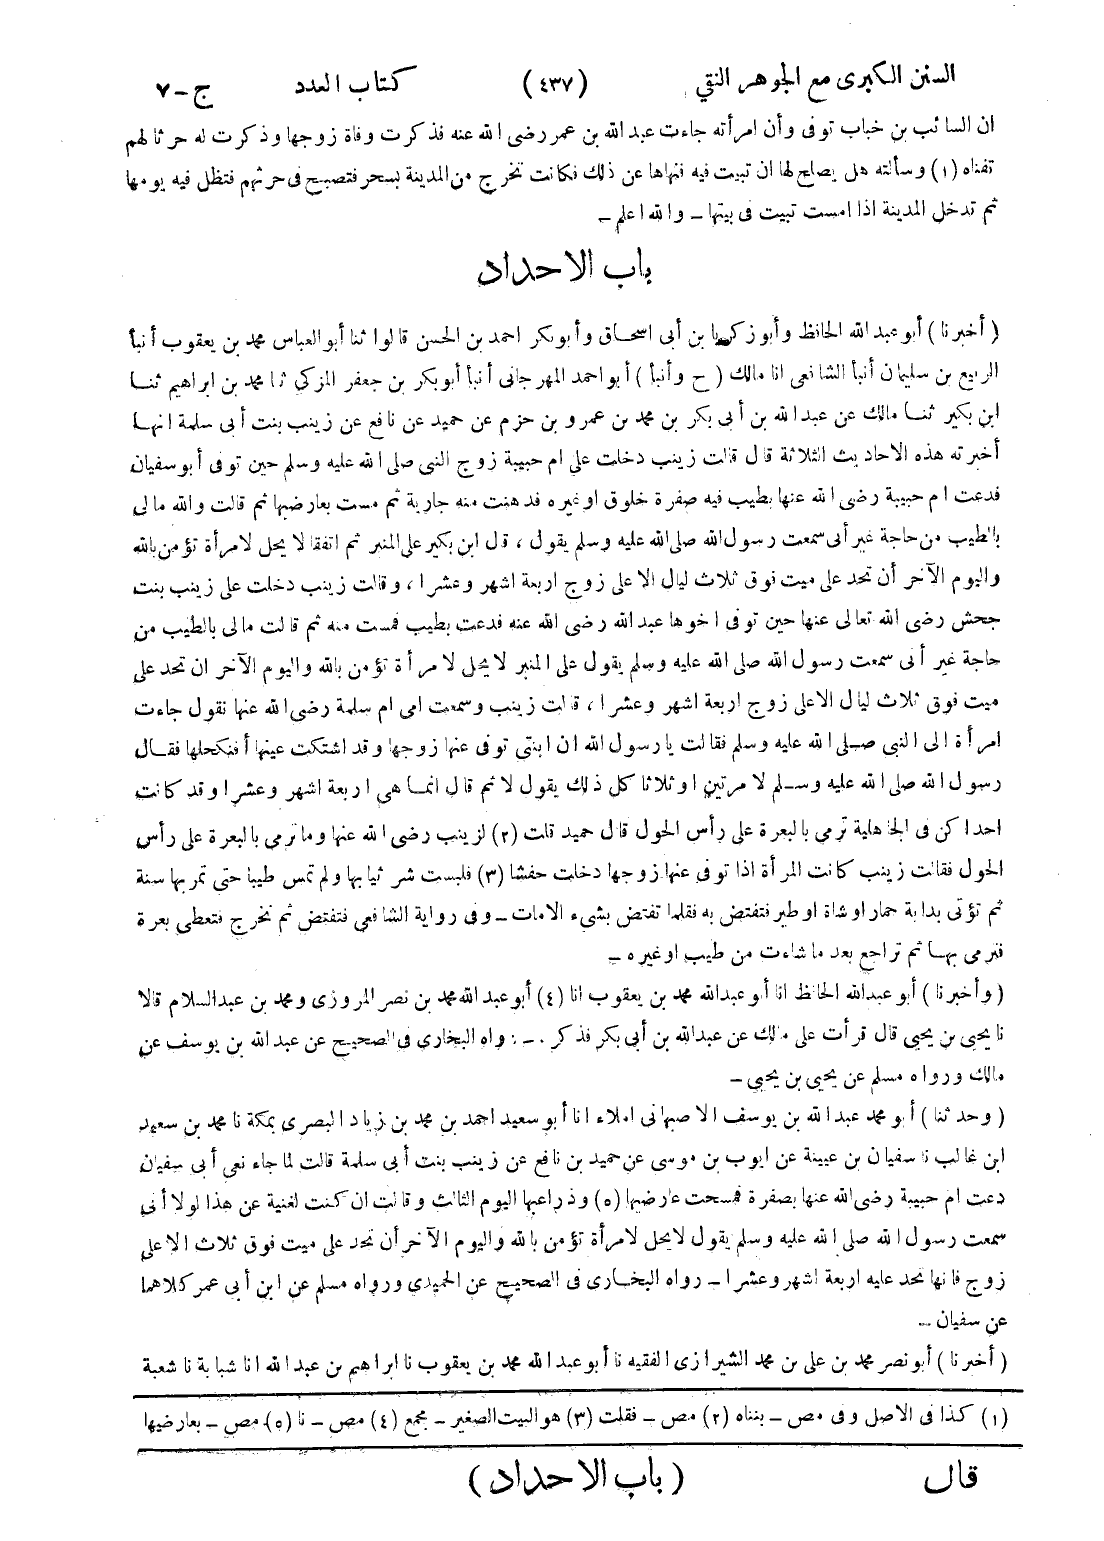 السنن الكبرى مع الجوهر النقي (٤٣٧) كتاب العدد ج-٧
ان السائب بن خباب توفى وأن امرأته جاءت عبد الله بن عمر رضى الله عنه فذكرت وفاة زوجها وذكرت له حرثا لهم
تفناه (١) وسألته هل يصلح لها ان تبيت فيه فنهاها عن ذلك فكانت تخرج من المدينة بسحر فتصبح فى حرثهم فتظل فيه يومها
ثم تدخل المدينة اذا امست تبيت فى بيتها ــ والله اعلم ــ
باب الاحداد
( أخبرنا ) أبو عبد الله الحافظ وأبو زكريا بن أبى اسحاق وأبو بكر احمد بن الحسن قالوا ثنا أبو العباس محمد بن يعقوب أنبأ
الربيع بن سليمان أنبأ الشافعى انا مالك ( ح وأنبأ ) أبو احمد المهرجانى أنبأ أبو بكر بن جعفر المزكى ثنا محمد بن ابراهيم ثنا
ابن بكير ثنا مالك عن عبد الله بن أبى بكر بن محمد بن عمرو بن حزم عن حميد عن نافع عن زينب بنت أبى سلمة انها
أخبرته هذه الاحاديث الثلاثة قال قالت زينب دخلت على ام حبيبة زوج النبى صلى الله عليه وسلم حين توفى أبو سفيان
فدعت ام حبيبة رضى الله عنها بطيب فيه صفرة خلوق او غيره فدهنت منه جارية ثم مست بعارضيها ثم قالت والله مالى
بالطيب من حاجة غير أنى سمعت رسول الله صلى الله عليه وسلم يقول ، قال ابن بكير على المنبر ثم اتفقا لا يحل لامرأة تؤمن بالله
واليوم الآخر أن تحد على ميت فوق ثلاث ليال الا على زوج اربعة اشهر وعشرا ، وقالت زينب دخلت على زينب بنت
جحش رضى الله تعالى عنها حين توفى اخوها عبد الله رضى الله عنه فدعت بطيب فمست منه ثم قالت مالى بالطيب من
حاجة غير أنى سمعت رسول الله صلى الله عليه وسلم يقول على المنبر لا يحل لامرأة تؤمن بالله واليوم الآخر ان تحد على
ميت فوق ثلاث ليال الا على زوج اربعة اشهر وعشرا ، قالت زينب وسمعت امى ام سلمة رضى الله عنها تقول جاءت
امرأة الى النبى صلى الله عليه وسلم فقالت يا رسول الله ان ابنتى توفى عنها زوجها وقد اشتكت عينها أفنكحلها فقال
رسول الله صلى الله عليه وسلم لا مرتين او ثلاثا كل ذلك يقول لا ثم قال انما هى اربعة اشهر وعشرا وقد كانت
احداكن فى الجاهلية ترمى بالبعرة على رأس الحول قال حميد قلت (٢) لزينب رضى الله عنها وما ترمى بالبعرة على رأس
الحول فقالت زينب كانت المرأة اذا توفى عنها زوجها دخلت حفشا (٣) فلبست شر ثيابها ولم تمس طيبا حتى تمر بها سنة
ثم تؤتى بدابة حمار او شاة او طير فتفتض به فقلما تفتض بشىء الا مات ــ وفى رواية الشافعى فتفتض ثم تخرج فتعطى بعرة
فترمى بها ثم تراجع بعد ما شاءت من طيب او غيره ــ
( وأخبرنا ) أبو عبد الله الحافظ انا أبو عبد الله محمد بن يعقوب انا (٤) أبو عبد الله محمد بن نصر المروزى ومحمد بن عبد السلام قالا
نا يحيى بن يحيى قال قرأت على مالك عن عبد الله بن أبى بكر فذكره ــ رواه البخارى فى الصحيح عن عبد الله بن يوسف عن
مالك ورواه مسلم عن يحيى بن يحيى ــ
( وحدثنا ) أبو محمد عبد الله بن يوسف الاصبهانى املاء انا أبو سعيد احمد بن محمد بن زياد البصرى بمكة نا محمد بن سعيد
ابن غالب نا سفيان بن عيينة عن ايوب بن موسى عن حميد بن نافع عن زينب بنت أبى سلمة قالت لما جاء نعى أبى سفيان
دعت ام حبيبة رضى الله عنها بصفرة فمسحت عارضيها (٥) وذراعيها اليوم الثالث وقالت ان كنت لغنية عن هذا لولا أنى
سمعت رسول الله صلى الله عليه وسلم يقول لا يحل لامرأة تؤمن بالله واليوم الآخر أن تحد على ميت فوق ثلاث الا على
زوج فانها تحد عليه اربعة اشهر وعشرا ــ رواه البخارى فى الصحيح عن الحميدى ورواه مسلم عن ابن أبى عمر كلاهما
عن سفيان ــ
( أخبرنا ) أبو نصر محمد بن على بن محمد الشيرازى الفقيه نا أبو عبد الله محمد بن يعقوب نا ابراهيم بن عبد الله انا شبابة نا شعبة
(١) كذا فى الاصل وفى مص ــ بفناه (٢) مص ــ فقلت (٣) هو البيت الصغير ــ مجمع (٤) مص ــ نا (٥) مص ــ بعارضيها
قال ( باب الاحداد )